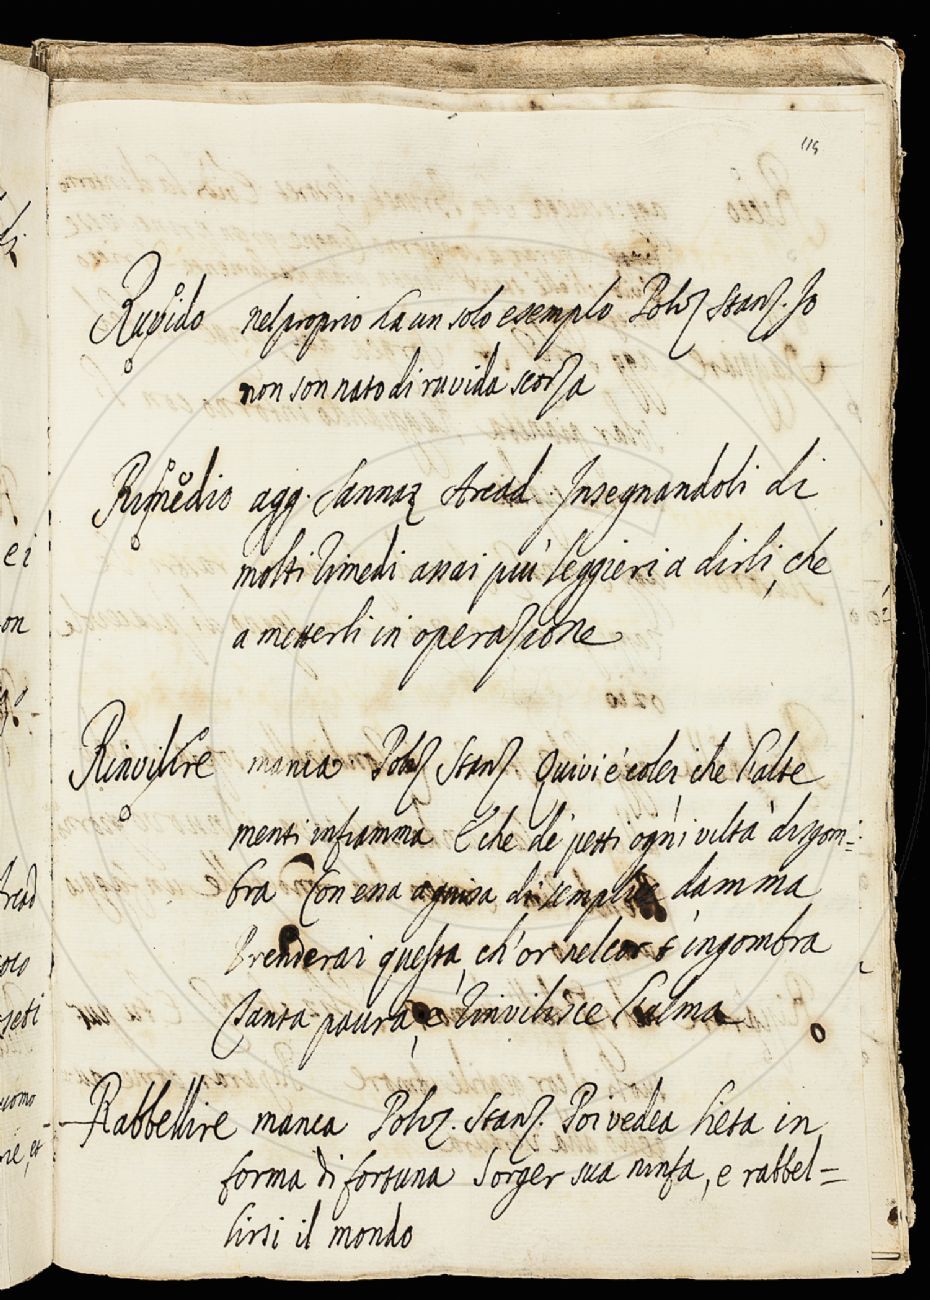 115
Ruvido nel proprio ha un solo esempio Poliz Stanz. Io
non son nato di ruvida scorza
Rimedio agg. Sannaz Arcad. Insegnandoli di
molti rimedi assai più leggieri a dirli, che
a metterli in operazione
Rinvilire manca Poliz Stanz Quivi è colei, che l'alte
menti infiamma E che de' petti ogni viltà disgom=
bra Con essa a guisa di semplice damma
Prenderai questa, ch'or nel cor t'ingombra
Tanta paura, e rinvilisce l'alma
Rabbellire manca Poliz. Stanz. Poi vedea lieta in
forma di fortuna Sorger sua ninfa, e rabbel=
lirsi il mondo